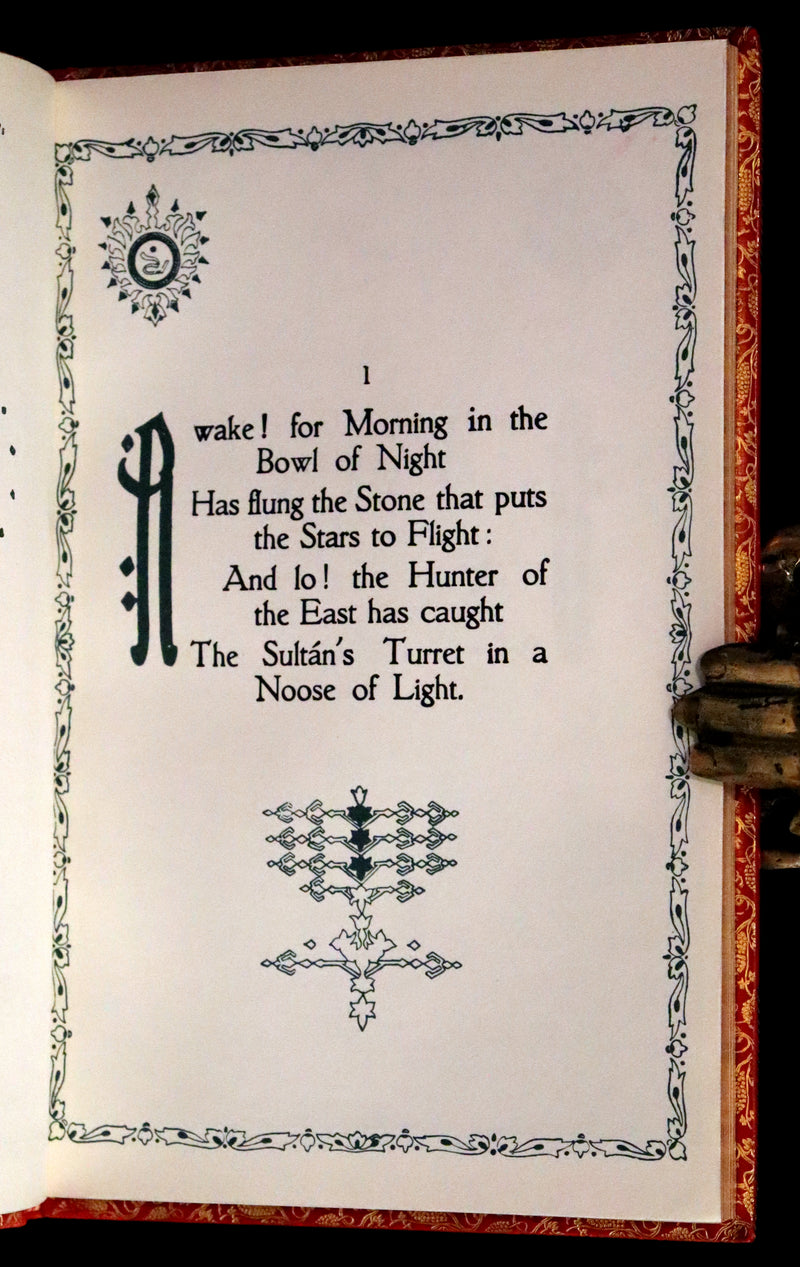 1
Awake! for Morning in the
Bowl of Night
Has flung the Stone that puts
the Stars to Flight:
And lo! the Hunter of
the East has caught
The Sultán's Turret in a
Noose of Light.